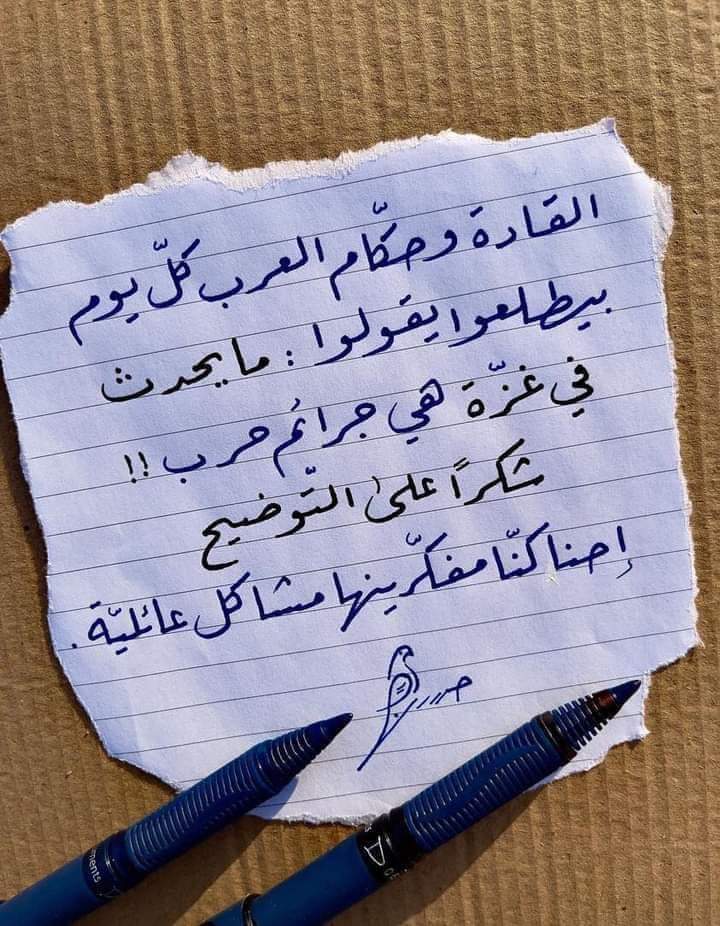 القادة وحكّام العرب كلّ يوم
بيطلعوا يقولوا : ما يحدث
في غزّة هي جرائم حرب !!
شكراً على التّوضيح
إحنا كنّا مفكّرينها مشاكل عائليّة .
ments